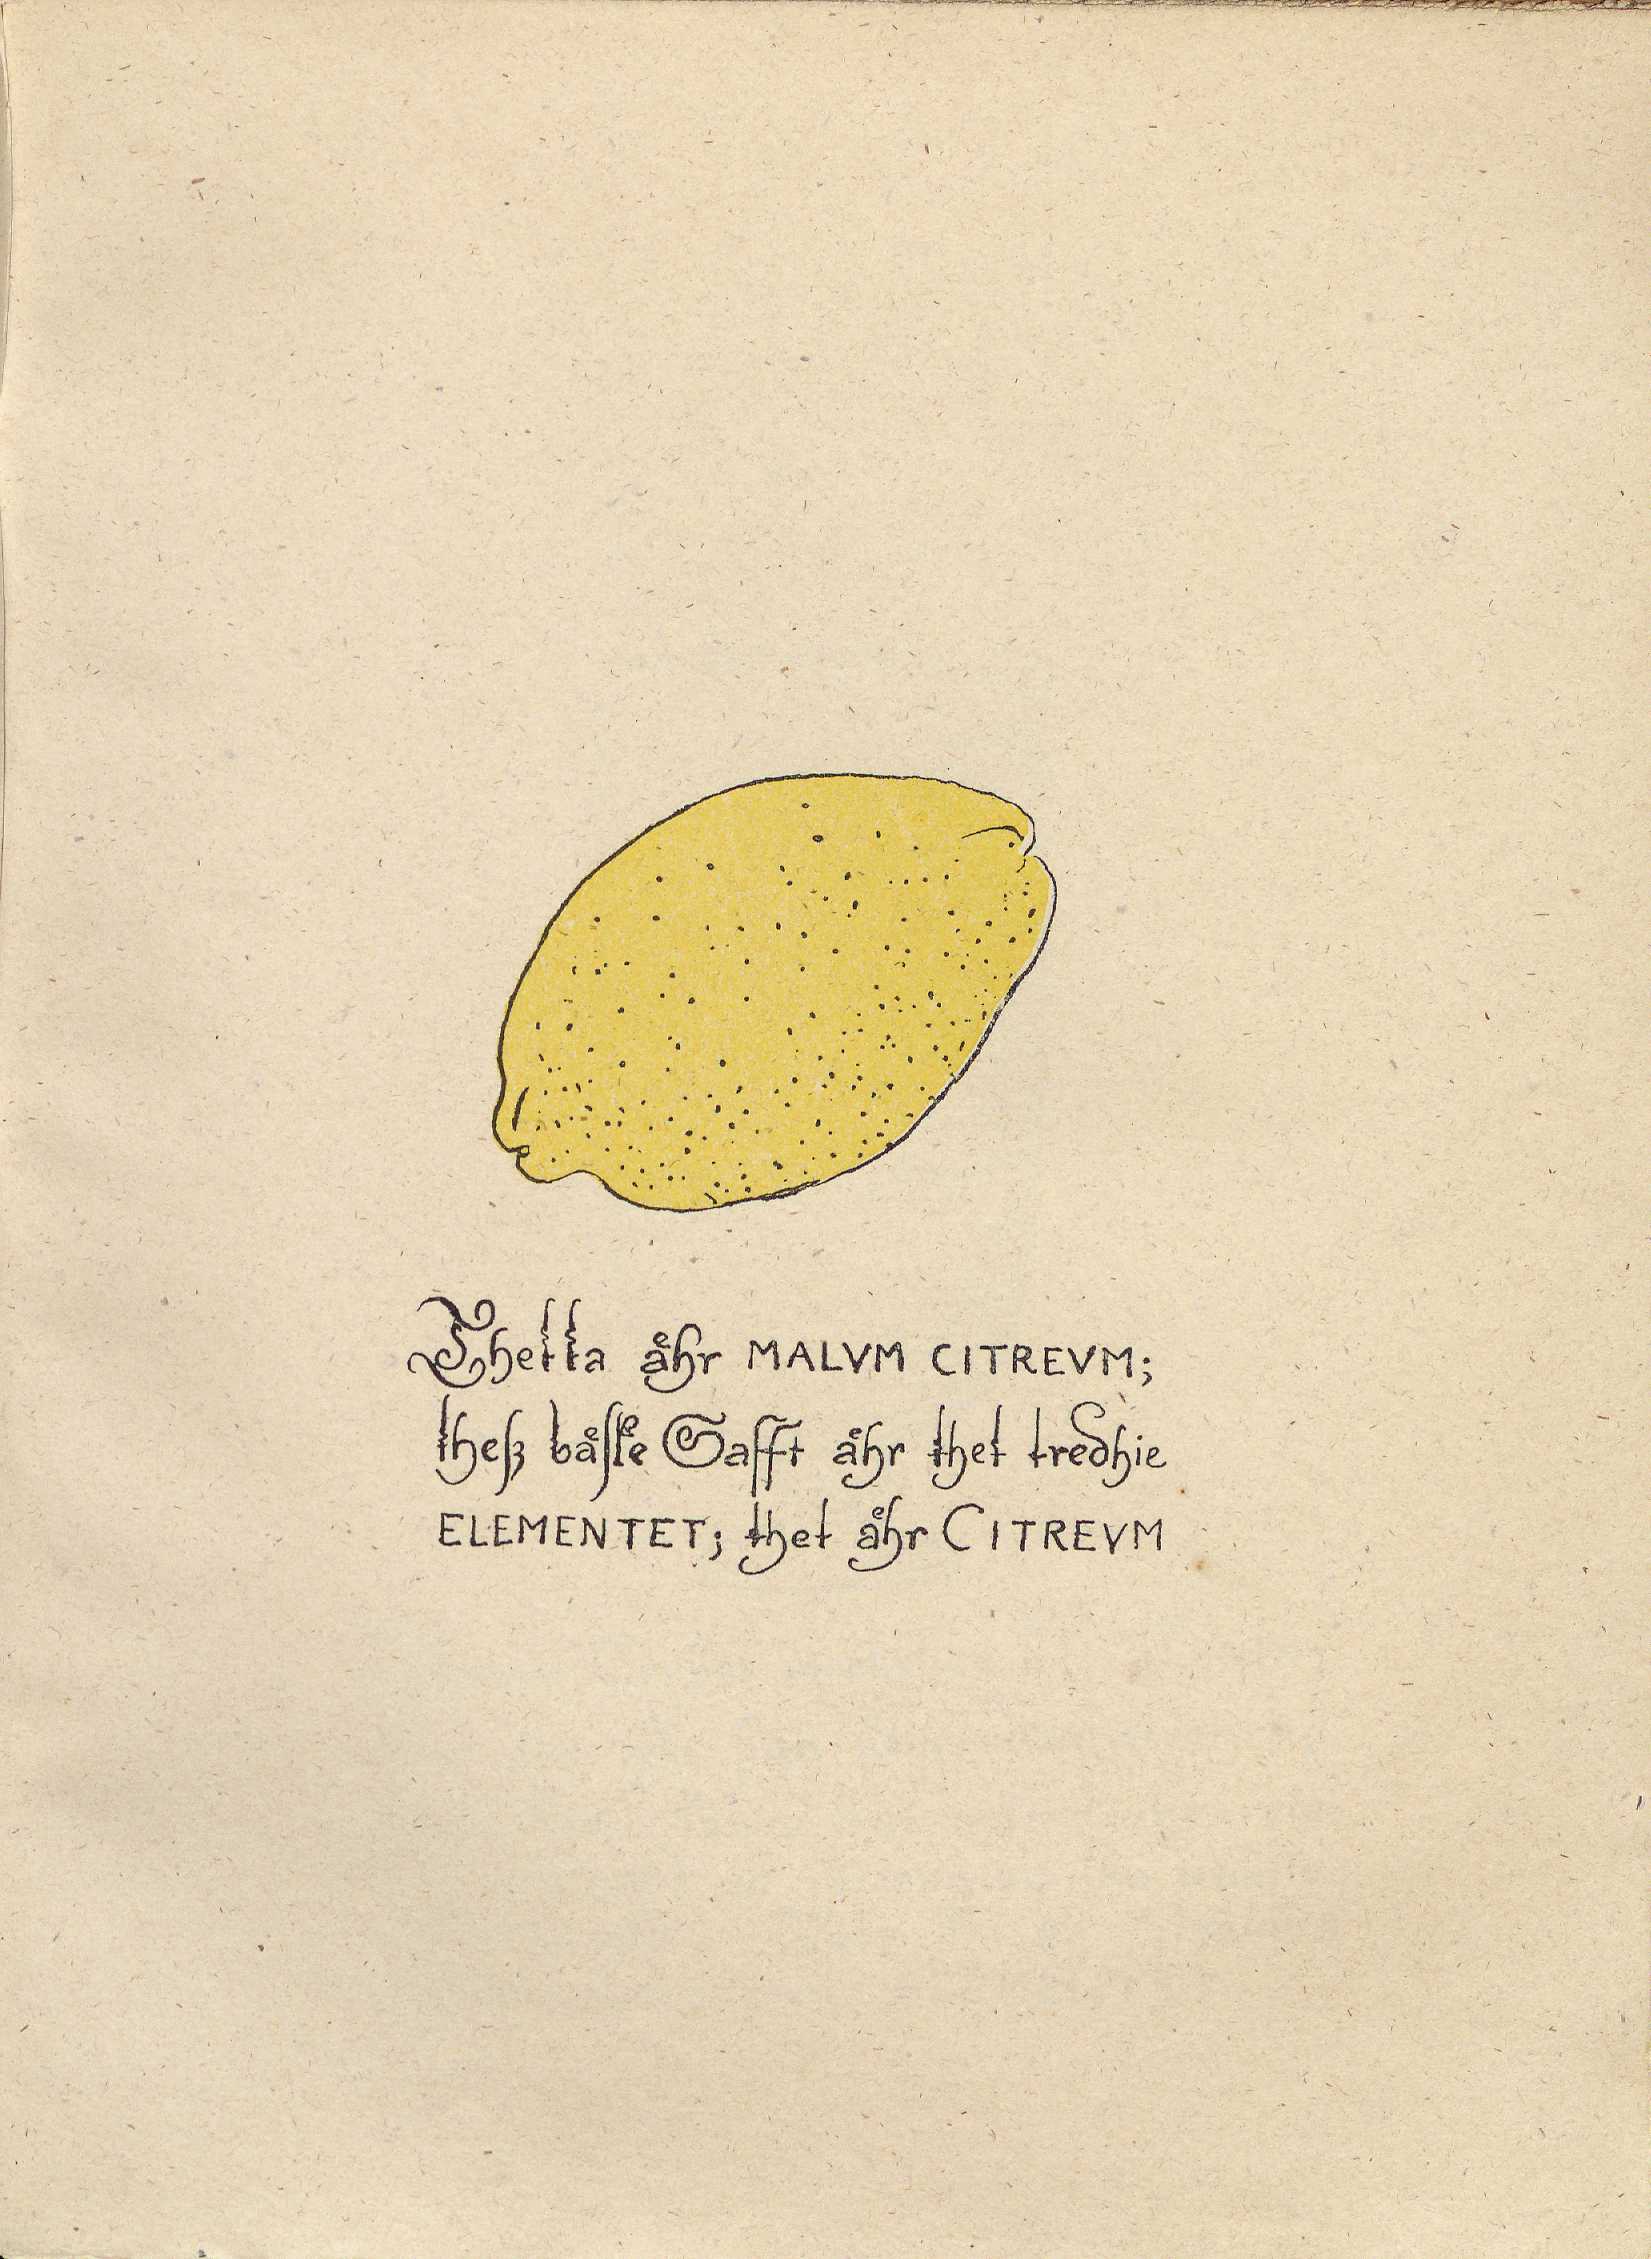 Thetta aͤhr MALVM CITREVM;
theſz baͤſte Safft aͤhr thet tredhie
ELEMENTET; thet aͤhr CITREVM